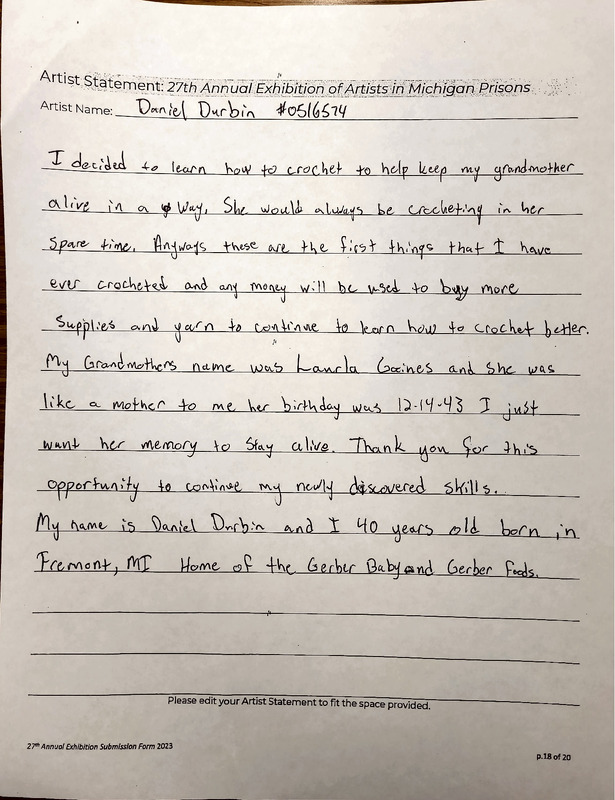 Artist Statement: 27th Annual Exhibition of Artists in Michigan Prisons
Artist Name: Daniel Durbin #0516574
I decided to learn how to crochet to help keep my grandmother
alive in a way. She would always be crocheting in her
spare time. Anyways these are the first things that I have
ever crocheted and any money will be used to buy more
supplies and yarn to continue to learn how to crochet better.
My Grandmothers name was Gaines and she was
like a mother to me her birthday was 12-14-43 I just
want her memory to stay alive. Thank you for this
opportunity to continue my newly discovered skills.
My name is Daniel Durbin and I 40 years old born in
Fremont, MI Home of the Gerber Baby and Gerber Foods.
Please edit your Artist Statement to fit the space provided.
27th Annual Exhibition Submission Form 2023
p.18 of 20